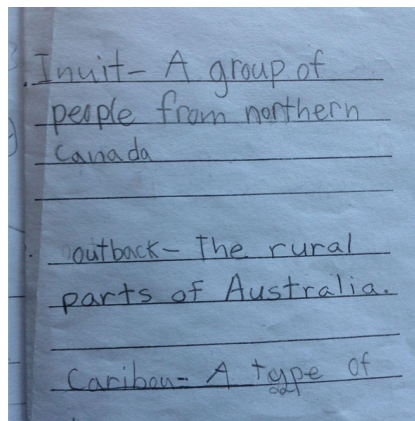 Inuit- A group of
people from northern
Canada
outback- The rural
parts of Australia.
Caribou- A type of